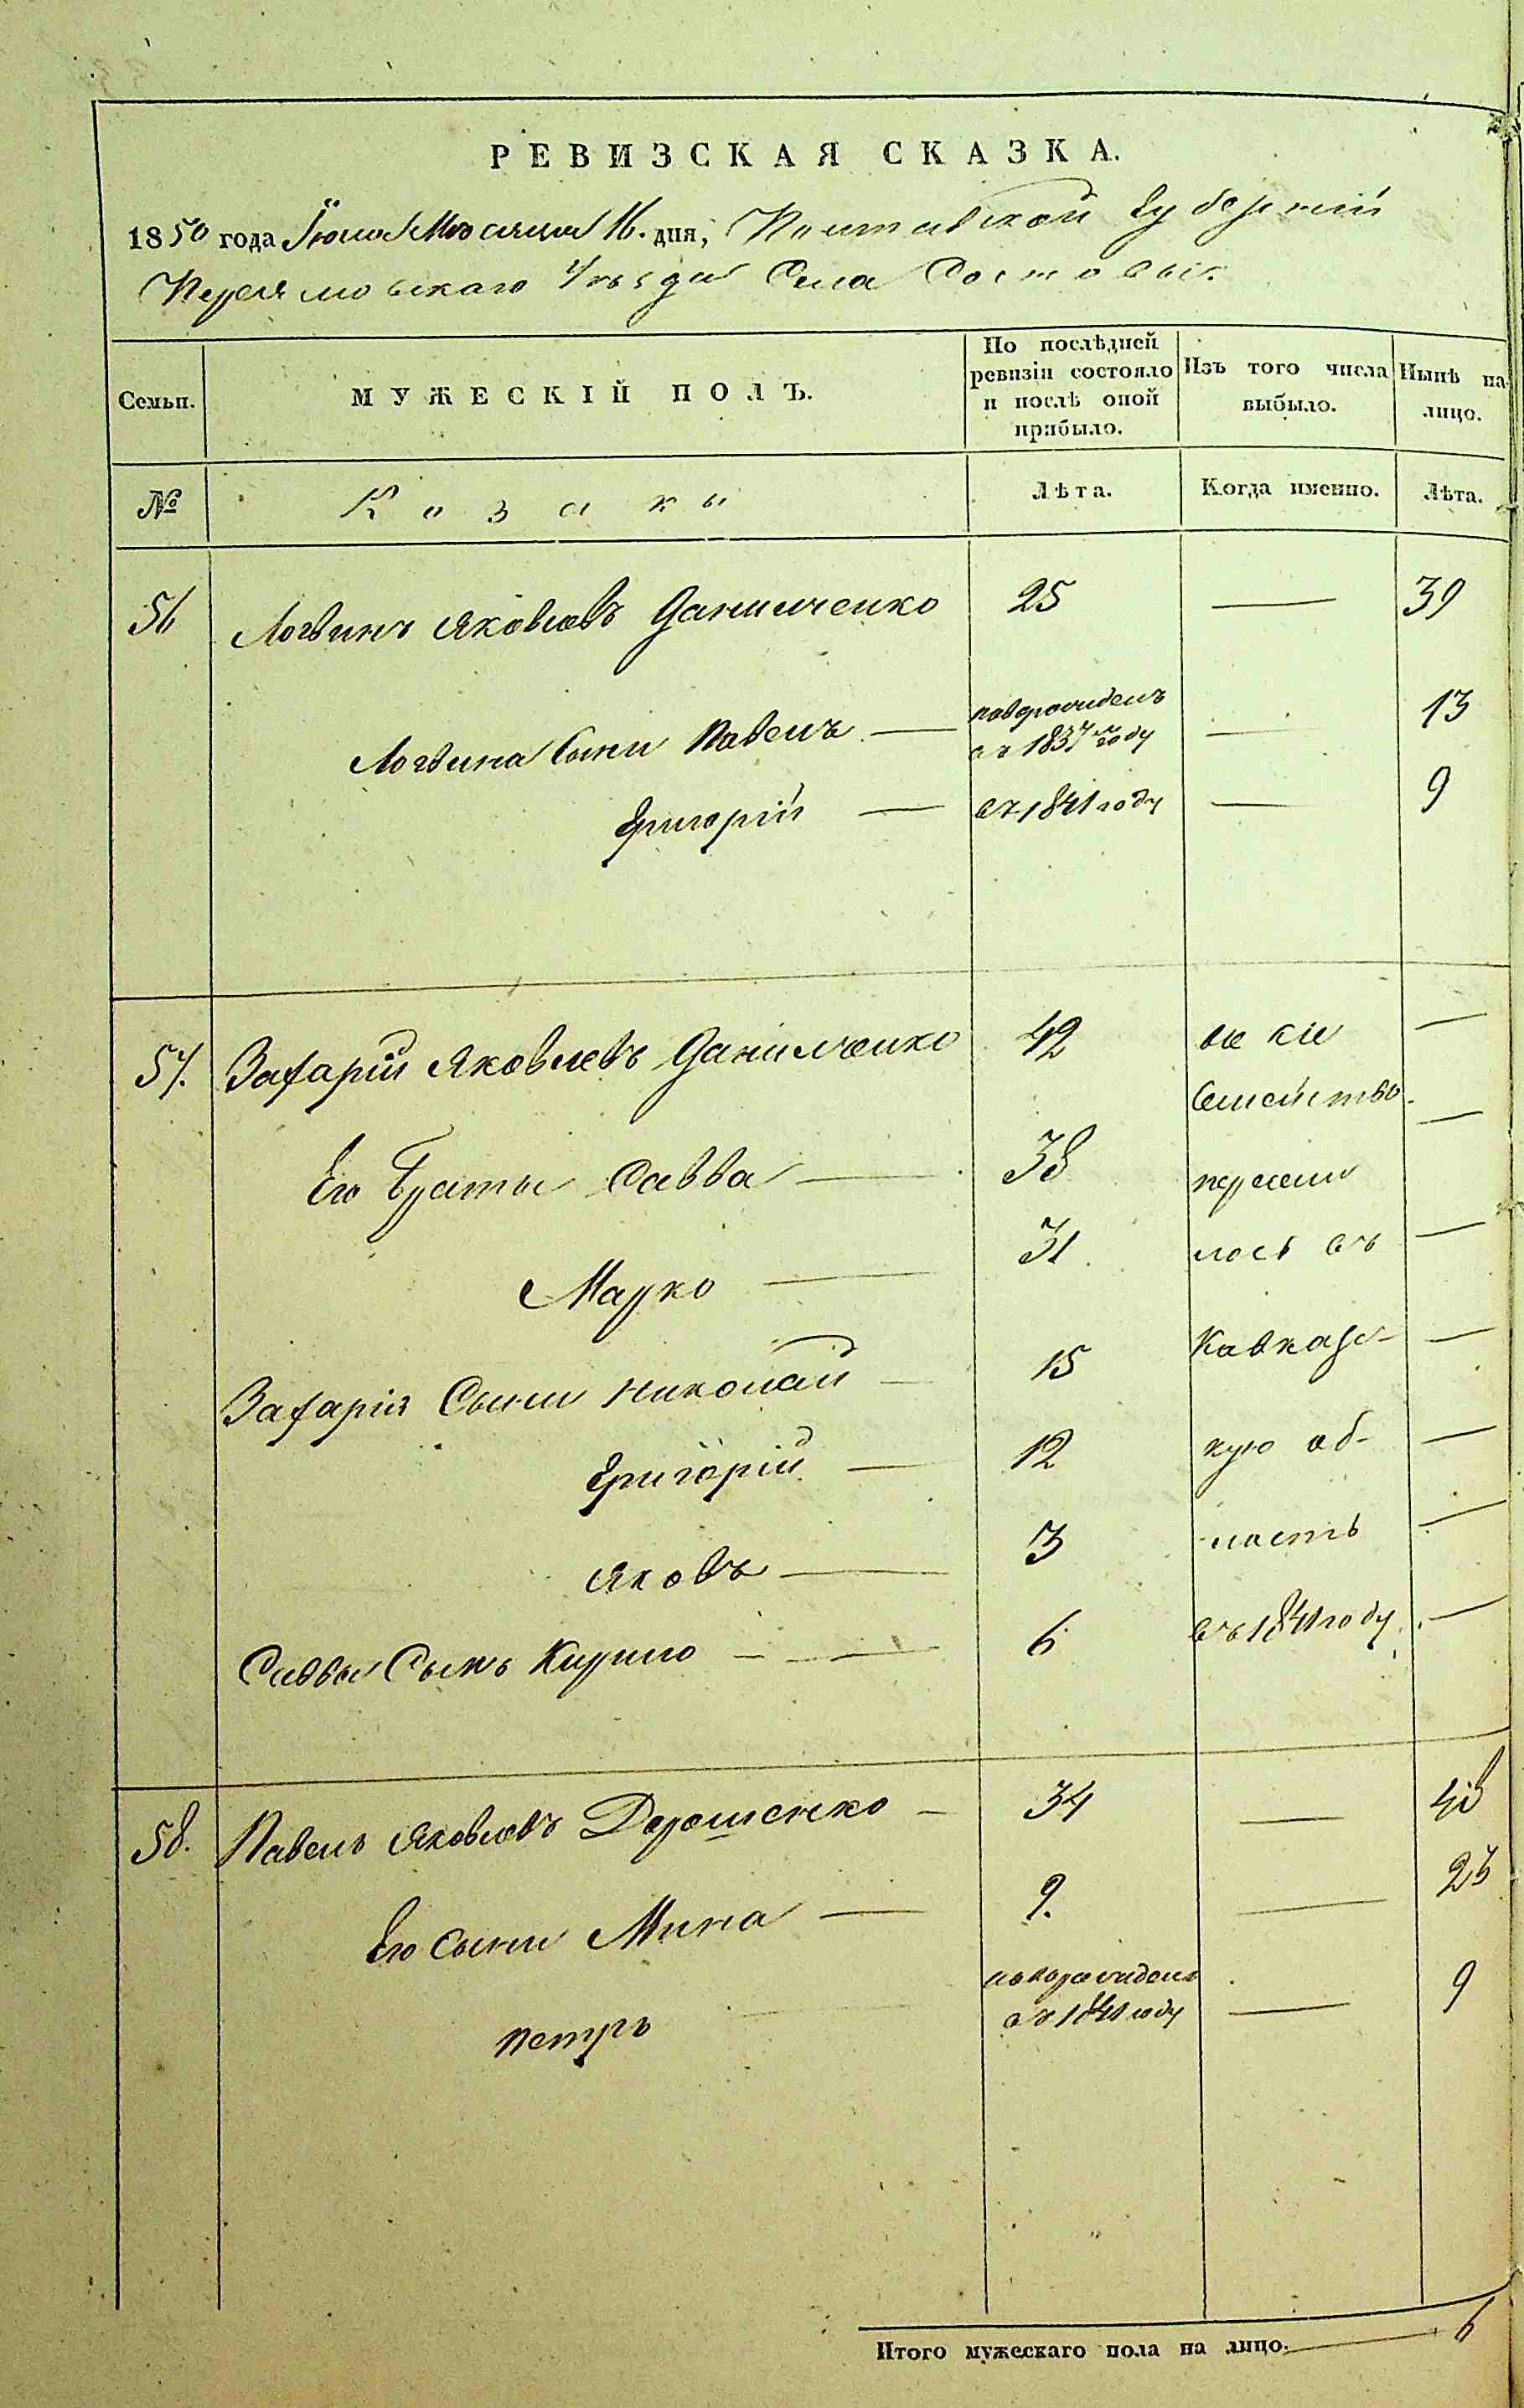 РЕВИЗСКАЯ СКАЗКА.
1850 года Іюня Мѣсяца 16. дня, Полтавской Губерніи
Переяславскаго Уѣзда Села
Семьи.
МУЖЕСКІЙ ПОЛЪ.
По послѣдней ревизіи состояло и послѣ оной прибыло.
Изъ того числа выбыло.
Нынѣ на лицо.
№
Козаки
Лѣта.
Когда именно.
Лѣта.
56 Логвинъ Яковлевъ Данилченко 25 — 39
Логвина Сыни Павелъ — новорожденъ въ 1837 году — 13
Григорій — въ 1841 году — 9
57. Захарій Яковлевъ Данилченко 42 все сіе —
Семейство
Его Браты Савва — 38 пересели —
Марко — 31 лось въ —
Захарія Сыни Николай — 15 Кавказс- —
Григорій — 12 кую об- —
Яковъ — 3 ласть —
Саввы Сынъ Кирило — — 6 въ 1841 году. —
58. Павелъ Яковлевъ Дорошенко — 34 — 48
Его сыни Мина — 9. — 23
Петръ новорожденъ въ 1841 году — 9
Итого мужескаго пола на лицо. — 6